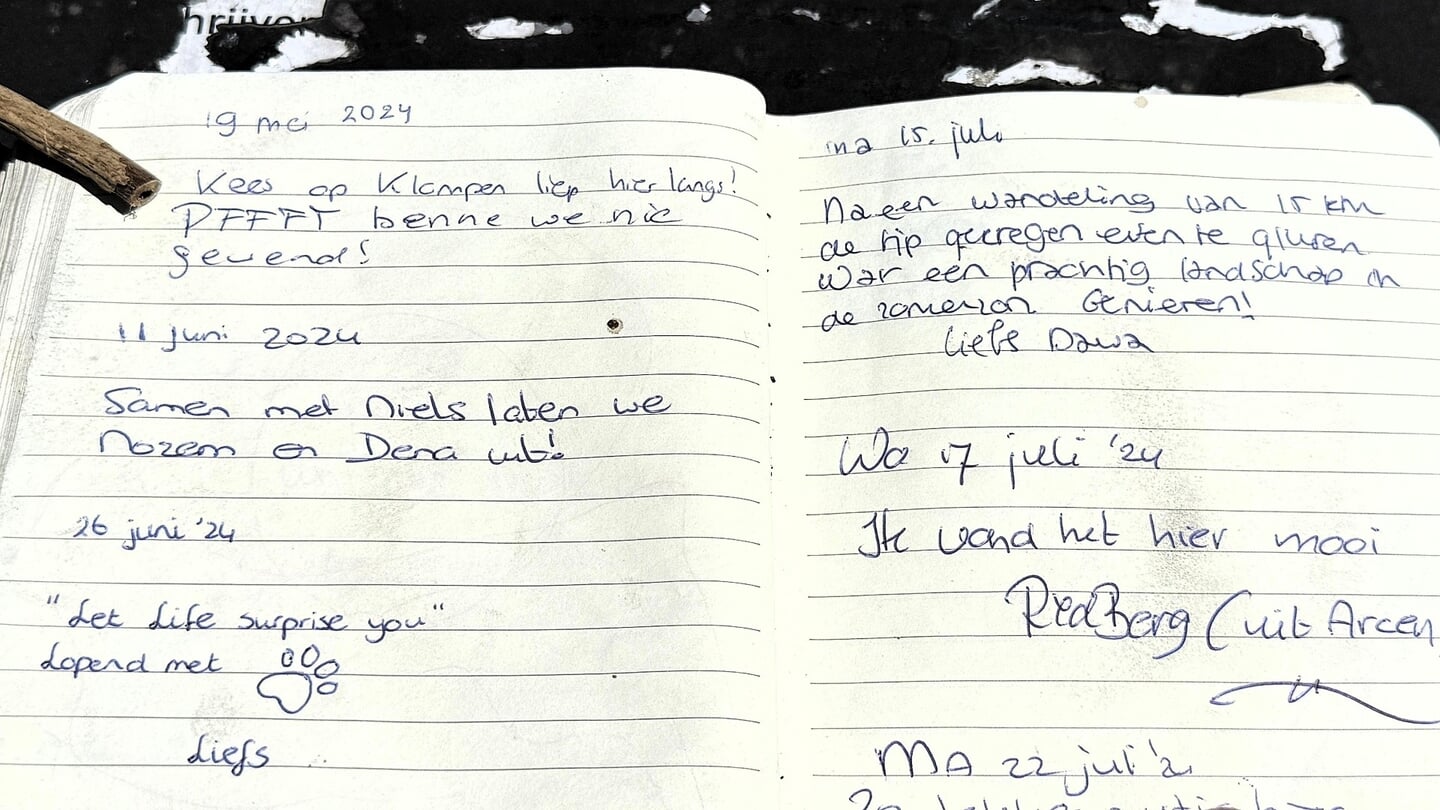 hrijven
19 mei 2024
Kees op Klompen liep hier langs!
PFFFT benne we nie
gewend!
11 juni 2024
Samen met Niels laten we
Nozem en Dena uit!
26 juni '24
"Let Life surprise you"
Lopend met
Liefs
ma 15. juli
Na een wandeling van 15 km
de tip gekregen even te gluren
Wat een prachtig landschap in
de zomerzon Genieten!
Liefs Dawa
Wo 17 juli '24
Ik vond het hier mooi
Berg (uit Arcen
MA 22 juli '2